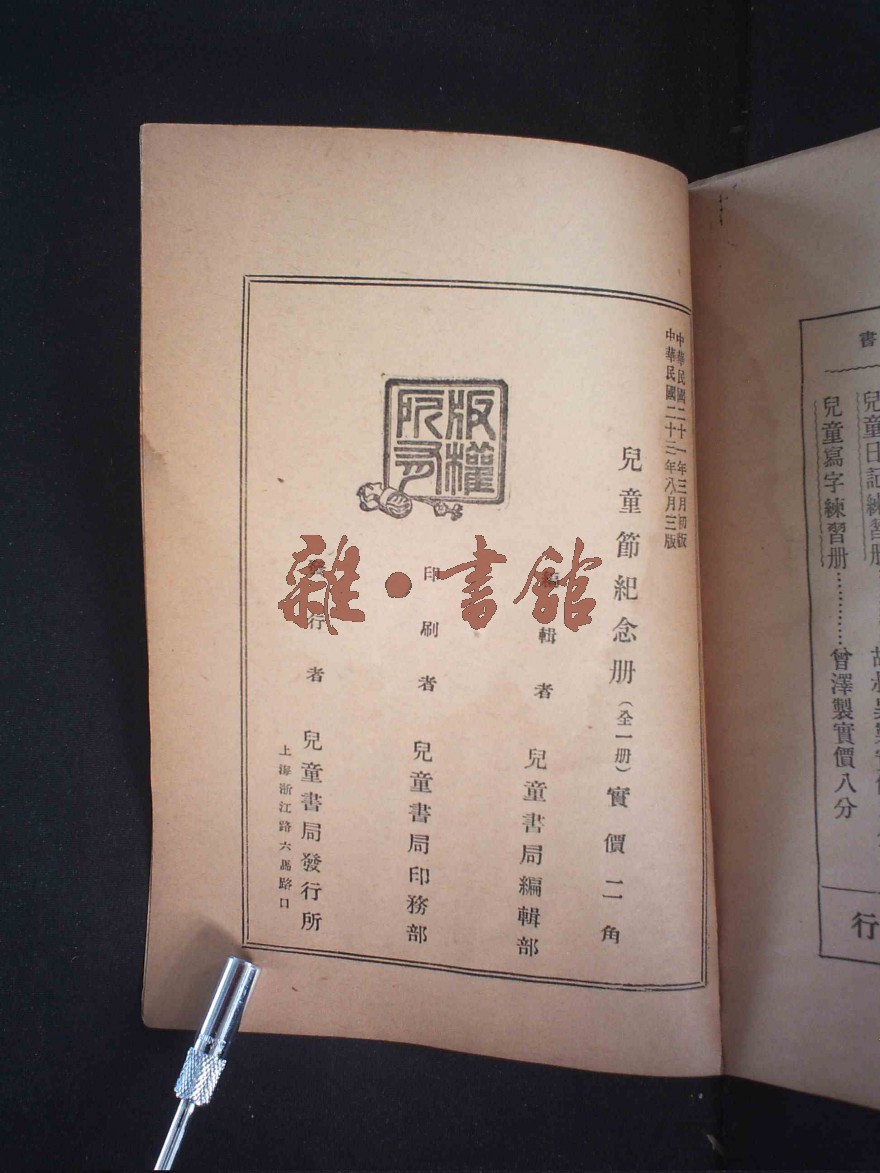 中華民國二十一年三月初版
中華民國二十三年八月三版
兒童節紀念册(全一册)實價二角
編輯者 兒童書局編輯部
印刷者 兒童書局印務部
發行者 兒童書局發行所
上海浙江路六馬路口
版權
所有
雜·書館
書
兒童日記練習册
兒童寫字練習册…………曾澤製實價八分
行